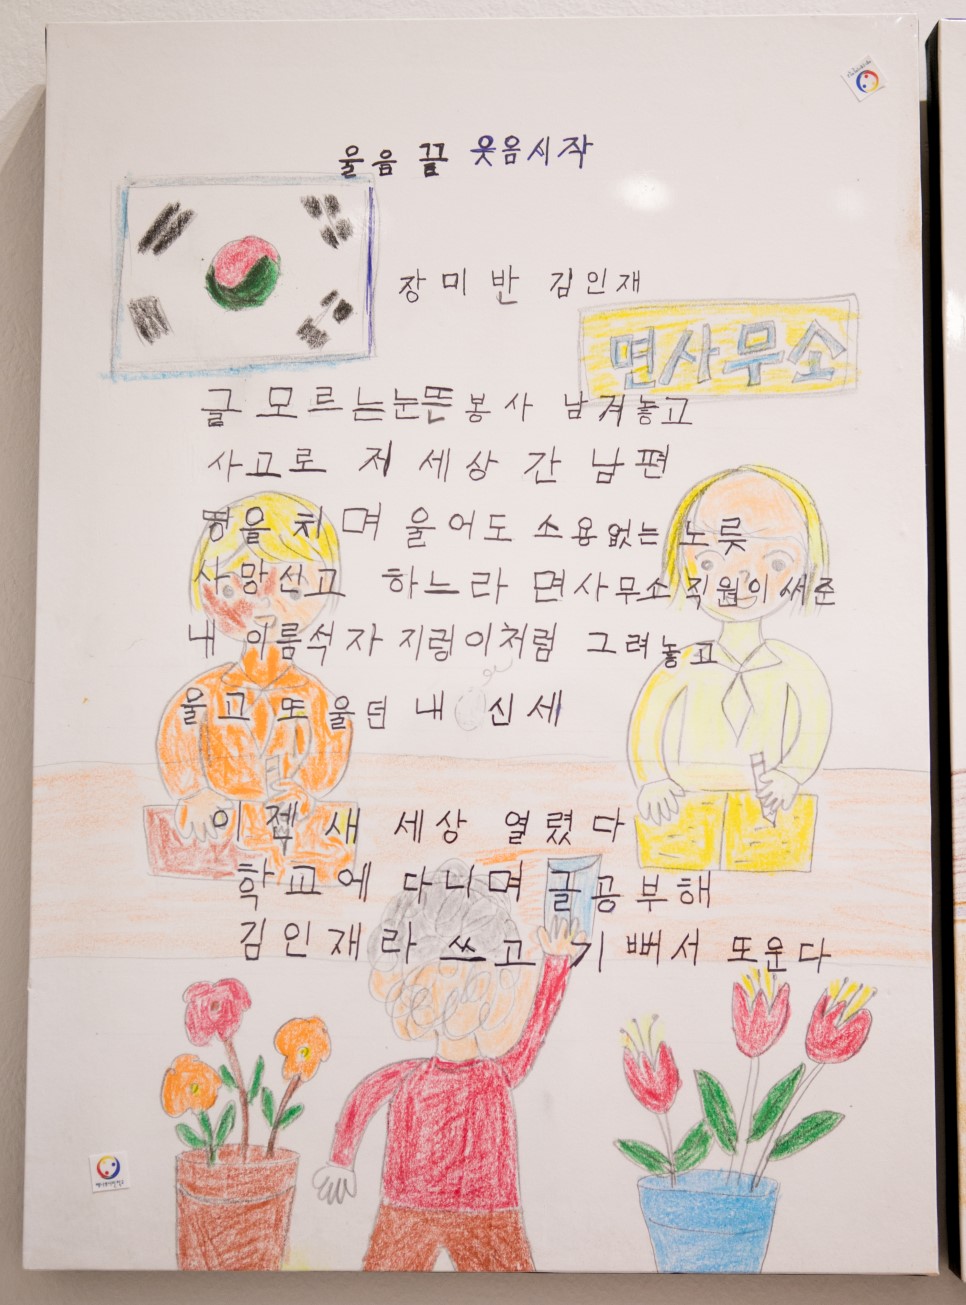 울음 끝 웃음시작
장미반 김인재
면사무소
글 모르는눈뜬봉사 남겨놓고
사고로 저 세상 간 남편
땅을 치며 울어도 소용없는 노릇
사망신고 하느라 면사무소직원이 써준
내 이름석자 지렁이처럼 그려놓고
울고 또 울던 내 신세
이젠 새 세상 열렸다
학교에 다니며 글공부해
김인재라 쓰고 기뻐서 또운다